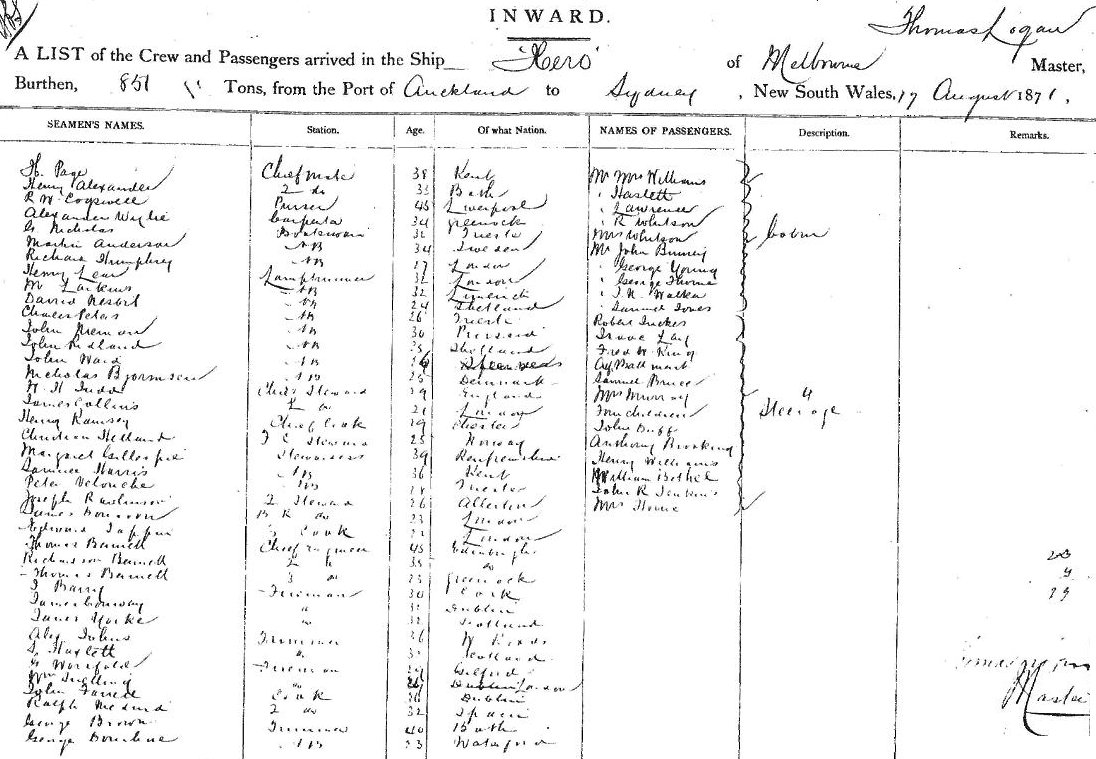 INWARD.
Thomas Logan
A LIST of the Crew and Passengers arrived in the Ship "Hero" of Melbourne Master,
Burthen, 851 Tons, from the Port of Auckland to Sydney, New South Wales, 17 August 1871,
SEAMEN'S NAMES. Station. Age. Of what Nation. NAMES OF PASSENGERS. Description. Remarks.
H. Page Chief Mate 38 Kent Mr Mrs Williams
Henry Alexander 2 do 33 Bath " Haslett
R W Cogswell Purser 45 Liverpool " Lawrence
Alexander Wylie Carpenter 34 Greenock " R Whitson
G Nicholas Boatswain 32 Trieste Mrs Whitson Cabin
Martin Anderson AB 34 Sweden Mr John Binney
Richard Humphrey AB 17 London " George Young
Henry Lear Lamptrimmer 32 London " George Thorne
M Larkins AB 32 Limerick " Walker
David Nesbit AB 24 Shetland " Samuel Jones
Charles Peters AB 26 Trieste Robert Tucker
John AB 30 Isaac
John Ridland AB 25 Shetland Fred W King
John Ward AB
Nicholas AB 25 Denmark Samuel Bruce
H H Judd Chief Steward 29 England Mrs Murray 4
James Collins 2 do 21 London Four children Steerage
Henry Ramsey Chief Cook 29 Chester John Duff
Christian Helland F C Steward 25 Norway Anthony Brooking
Margaret Gillespie Stewardess 39 Renfrewshire Henry Williams
Harris AB 36 Kent William Bethel
Peter AB 28 Trieste John R Jenkins
Joseph 2 Steward 26 Mrs Horne
James B R do 23 London
Edward Tappin 3 Cook 22 London
Thomas Bennett Chief Engineer 45 Edinburgh 20
Richardson Bennett 2 35 do 9
Thomas Bennett 3 do 23 Greenock 29
J Barry Fireman 30 Cork
James Conway " Dublin
James Yorke " 32 Scotland
Alex Johns Trimmer 26
S Haslett " Scotland
G Worsfold Fireman 29
Wm Snelling " London
John Farrell Cook 26 Dublin
Ralph 2 do 32 Spain
George Brown Trimmer 40 Bath
George AB 23 Waterford
Master